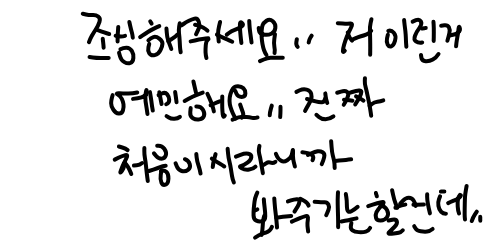 조심해주세요,, 저 이런거
예민해요,, 진짜
처음이시라니까
봐주기는할건데,,